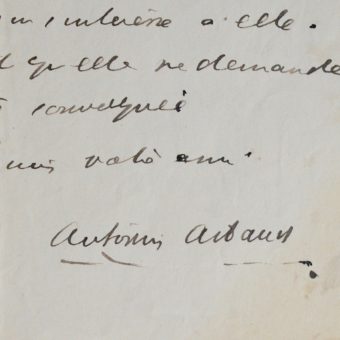 m'intéresse à elle.
qu'elle ne demande
suis votre ami
Antonin Artaud